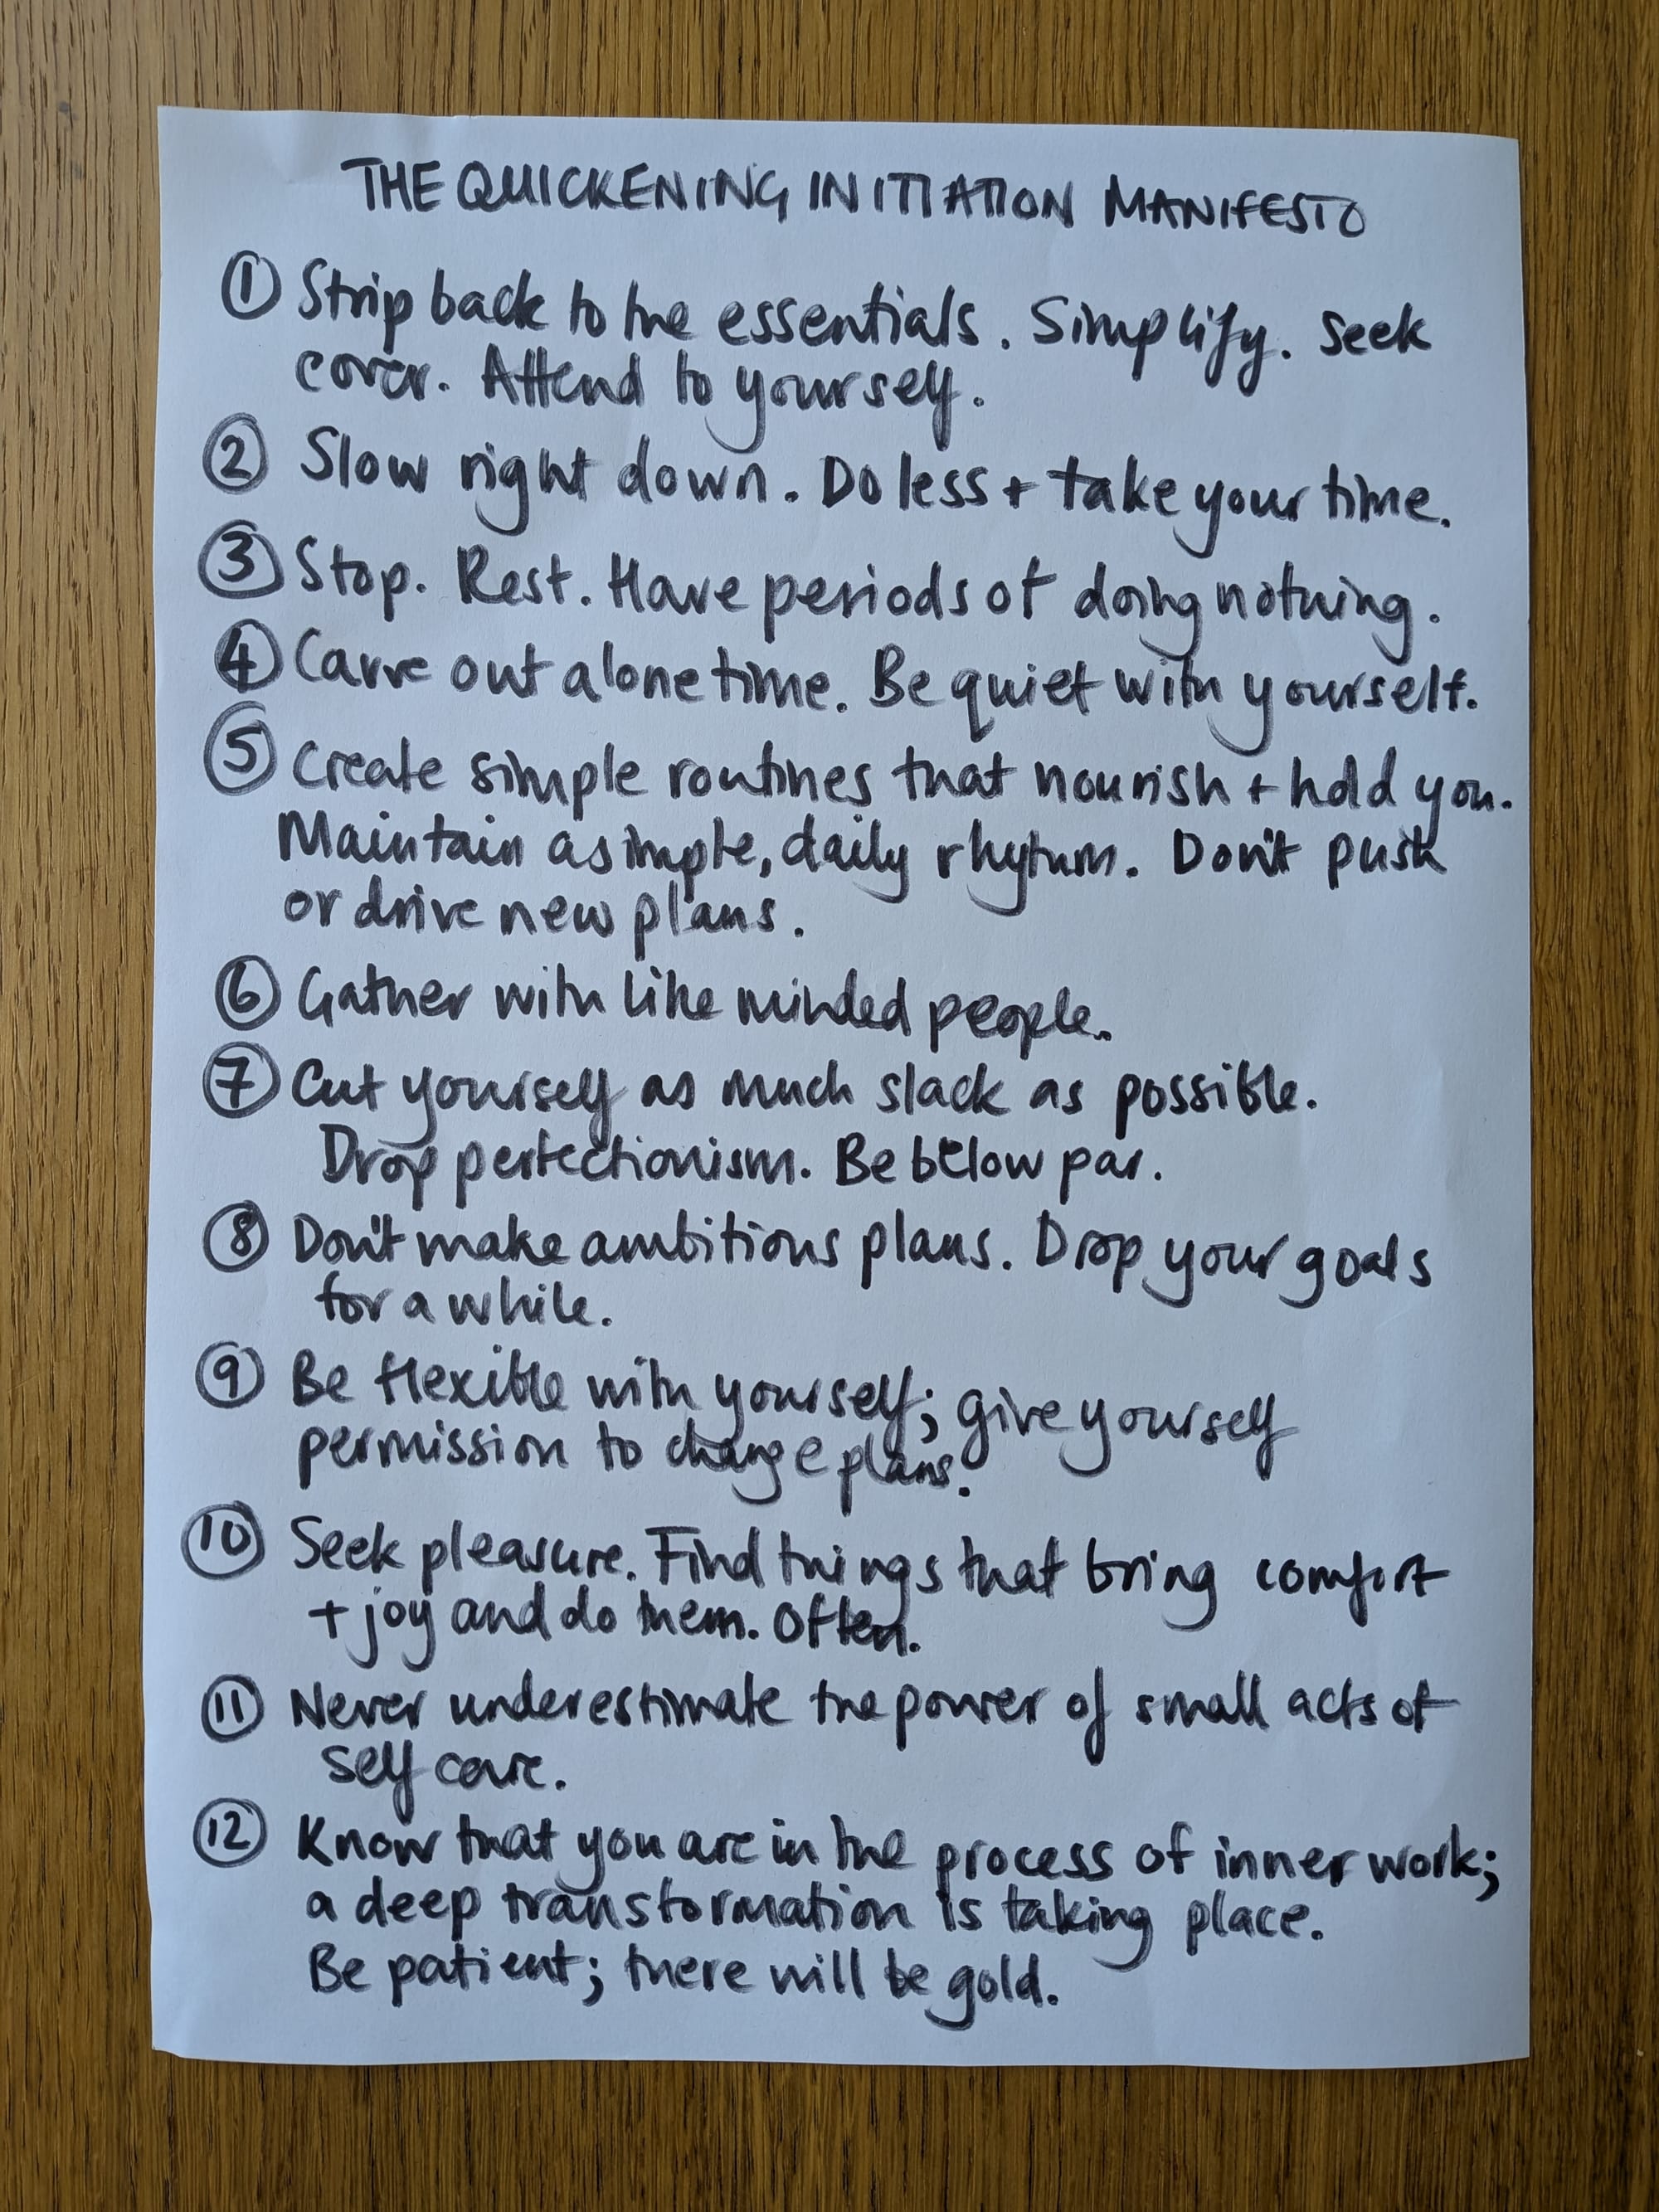 THE QUICKENING INITIATION MANIFESTO
① Strip back to the essentials. Simplify. Seek
cover. Attend to yourself.
② Slow right down. Do less + take your time.
③ Stop. Rest. Have periods of doing nothing.
④ Carve out alone time. Be quiet with yourself.
⑤ Create simple routines that nourish + hold you.
Maintain a simple, daily rhythm. Don't push
or drive new plans.
⑥ Gather with like minded people.
⑦ Cut yourself as much slack as possible.
Drop perfectionism. Be below par.
⑧ Don't make ambitious plans. Drop your goals
for a while.
⑨ Be flexible with yourself; give yourself
permission to change plans.
⑩ Seek pleasure. Find things that bring comfort
+ joy and do them. Often.
⑪ Never underestimate the power of small acts of
self care.
⑫ Know that you are in the process of inner work;
a deep transformation is taking place.
Be patient; there will be gold.